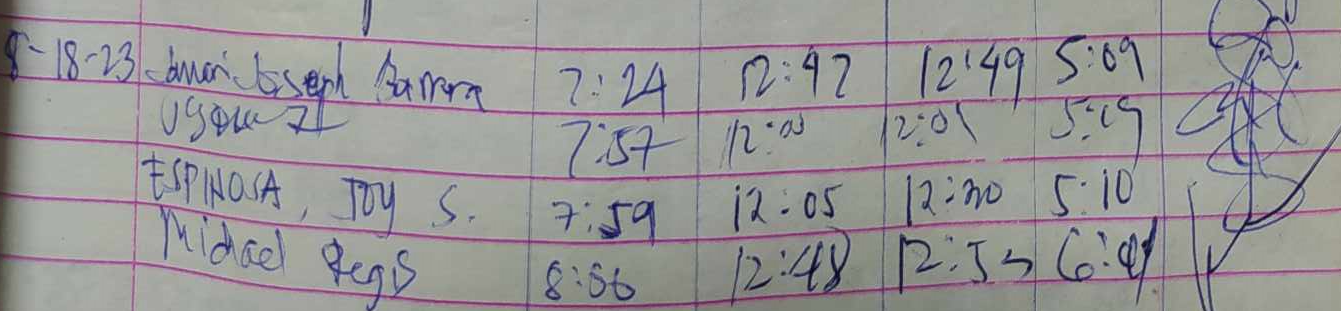 8-18-23 Joseph Barrera 7:24 12:47 12:49 5:09
7:57 12:00 12:01 5:19
ESPINOSA, JOY S. 7:59 12:05 12:30 5:10
Michael Regis 8:56 12:48 12:53